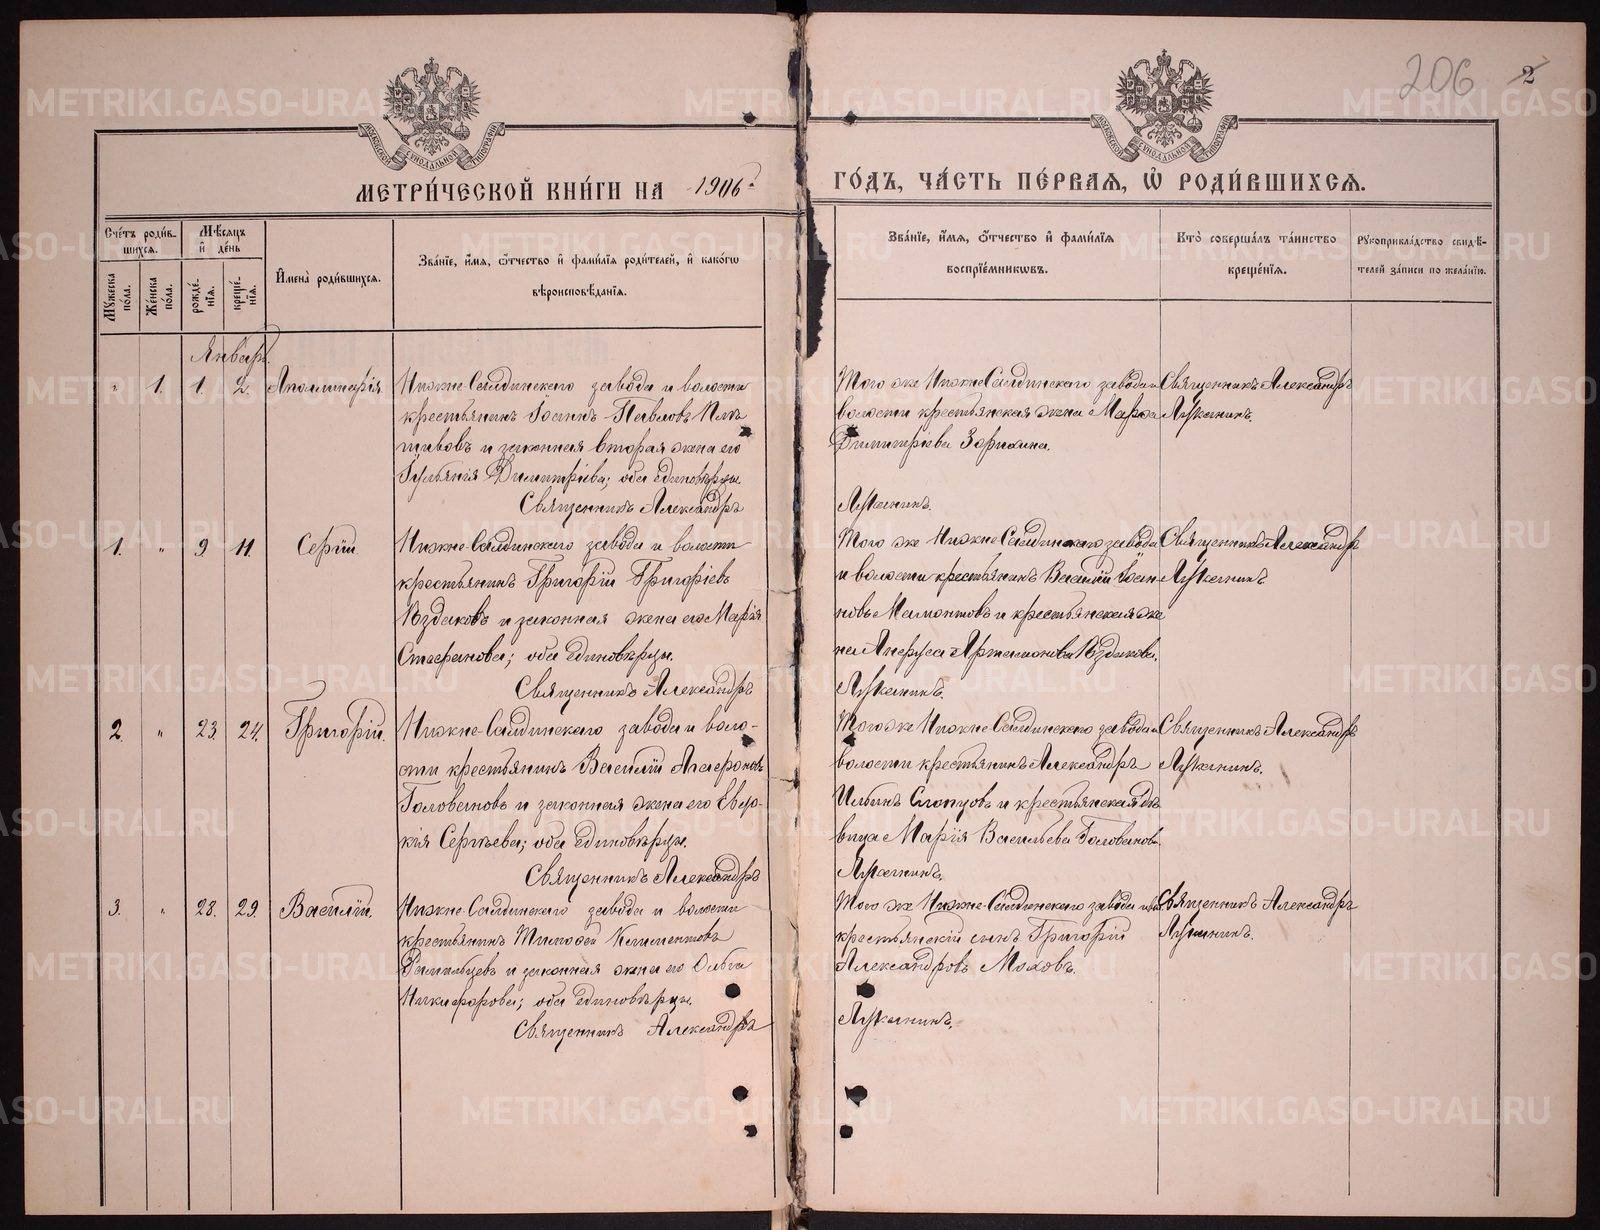 206 2
МОСКОВСКОЙ СУНОДАЛЬНОЙ ТИПОГРАФІИ
МОСКОВСКОЙ СУНОДАЛЬНОЙ ТИПОГРАФІИ
МЕТРИ́ЧЕСКОЙ КНИ́ГИ НА 1906 г. ГО́ДЪ, ЧА́СТЬ ПЕ́РВАЯ, Ѡ РОДИ́ВШИХСЯ.
Сче́тъ роди́в-
шихся.
Мꙋжеска по́ла.
Же́нска по́ла.
Мѣ́сяцъ
и҆ де́нь
рожде́-
нїѧ.
креще́-
нїѧ.
И҆мена̀ роди́вшихся.
Зва́нїе, и҆́мѧ, ѻ҆́тчество и҆ фами́лїѧ роди́телей, и҆ како́гѡ
вѣроисповѣ́данїѧ.
Зва́нїе, и҆́мѧ, ѻ҆́тчество и҆ фами́лїѧ
воспрїе́мникѡвъ.
Кто̀ соверша́лъ та́инство
креще́нїѧ.
Рꙋкоприкла́дство свидѣ́-
телей за́писи по жела́нїю.
Январь.
" 1. 1. 2. Аполлинарія
Нижне-Салдинскаго завода и волости
крестьянинъ Іоаннъ Павловъ
и законная вторая жена его
Іуліанія Димитріева; оба единовѣрцы.
Священникъ Александръ
Того же Нижне Салдинскаго завода и
волости крестьянская жена
Димитріева Зорихина.
Лукканинъ.
Священникъ Александръ
Лукканинъ.
1. " 9 11. Сергій
Нижне-Салдинскаго завода и волости
крестьянинъ Григорій Григоріевъ
и законная жена его Марія
Стефанова; оба единовѣрцы.
Священникъ Александръ
Того же Нижне Салдинскаго завода
и волости крестьянинъ Василій Іоан-
новъ Мамонтовъ и крестьянская же-
на Анфуса Артамонова
Лукканинъ.
Священникъ Александръ
Лукканинъ
2. " 23. 24. Григорій.
Нижне-Салдинскаго завода и воло-
сти крестьянинъ Василій Агафоновъ
Головановъ и законная жена его Евдо-
кія Сергѣева; оба единовѣрцы.
Священникъ Александръ
Того же Нижне Салдинскаго завода и
волости крестьянинъ Александръ
Ильинъ и крестьянская дѣ-
вица Марія Васильева Голованова.
Лукканинъ.
Священникъ Александръ
Лукканинъ.
3. " 28. 29. Василій.
Нижне-Салдинскаго завода и волости
крестьянинъ Тимофей Климентовъ
и законная жена его Ольга
Никифорова; оба единовѣрцы.
Священникъ Александръ
Того же Нижне-Салдинскаго завода и
крестьянскій сынъ Григорій
Александровъ Моховъ.
Лукканинъ.
Священникъ Александръ
Лукканинъ.
METRIKI.GASO-URAL.RU